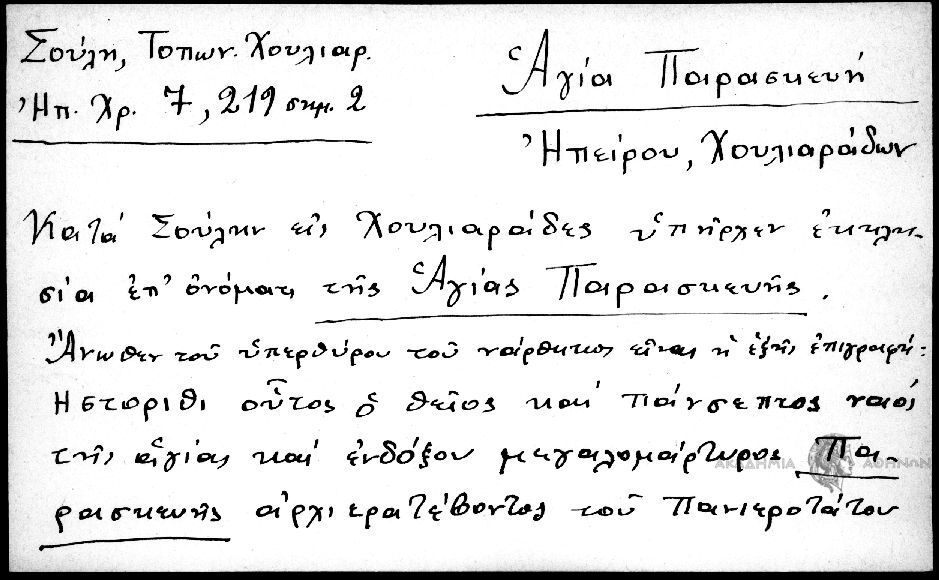 Σούλη, Τοπων. Χουλιαρ.
Ἠπ. Χρ. 7, 219 σημ. 2
Ἁγία Παρασκευή
Ἠπείρου, Χουλιαράδων
Κατά Σούλην εἰς Χουλιαράδες ὑπῆρχεν ἐκκλη-
σία ἐπ' ὀνόματι τῆς Ἁγίας Παρασκευῆς.
Ἄνωθεν τοῦ ὑπερθύρου τοῦ νάρθηκος εἶναι ἡ ἑξῆς ἐπιγραφή:
Ηστοριθι οὗτος ὁ θεῖος καί πάνσεπτος ναός
τῆς ἁγίας καί ἐνδόξου μεγαλομάρτυρος Πα-
ρασκευῆς ἀρχιερατέβοντος τοῦ Πανιεροτάτου
ΑΚΑΔΗΜΙΑ ΑΘΗΝΩΝ